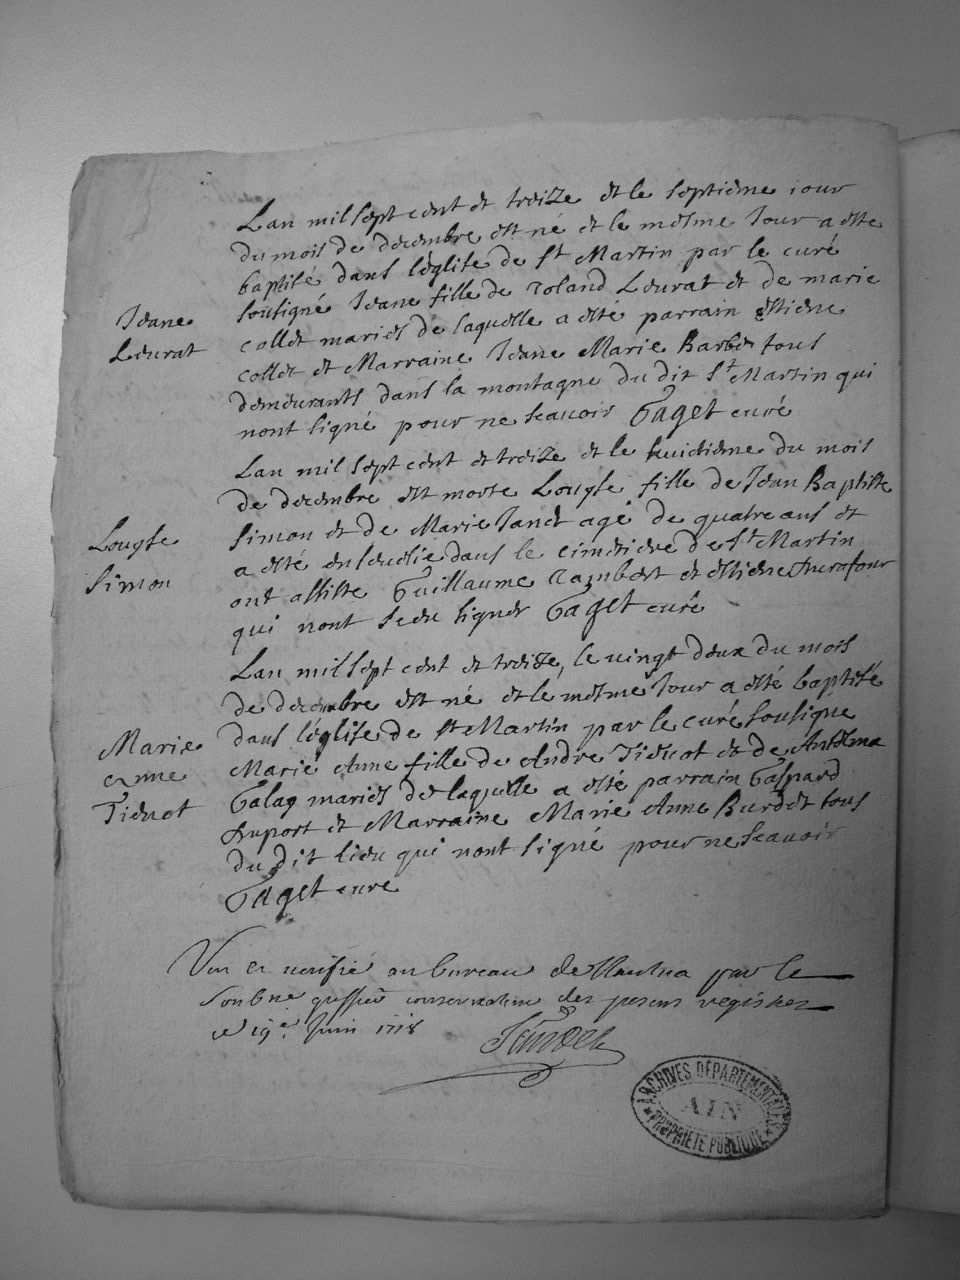 Lan mil sept cent et treize et le septieme iour
du mois de decembre est né et le mesme Jour a este
baptisé dans l'église de St Martin par le curé
sousigné Jeane fille de roland Leurat et de marie
Jeane
Leurat
collet mariés de laquelle a esté parrain estiene
collet et Marraine Jeane Marie Barbet tous
demeurants dans la montagne du dit St Martin qui
nont signé pour ne scauoir Gaget curé
Lan mil sept cent et treize et le huictieme du mois
de decembre est morte Louyse fille de Jean Baptiste
Louyse
Simon
Simon et de Marie Janet agé de quatre ans et
a esté enseuelie dans le cimetiere de St Martin
ont assiste Guillaume rambert et estiene
qui nont sceu signer Gaget curé
Lan mil sept cent et treize, le vingt deux du mois
de decembre est né et le mesme Jour a esté baptisé
dans l'église de St Martin par le curé sousigné
Marie
anne
Tieuot
Marie Anne fille de Andre Tieuot et de
Galay mariés de laquelle a esté parrain Gaspard
duport et Marraine Marie Anne Burdet tous
du dit lieu qui nont signé pour ne scauoir
Gaget curé
Veu et verifié au bureau de Nantua par le
Soubne greffier conservateur des presens registres
ce 19e Juin 1718
ARCHIVES DÉPARTEMENTALES
AIN
PROPRIÉTÉ PUBLIQUE